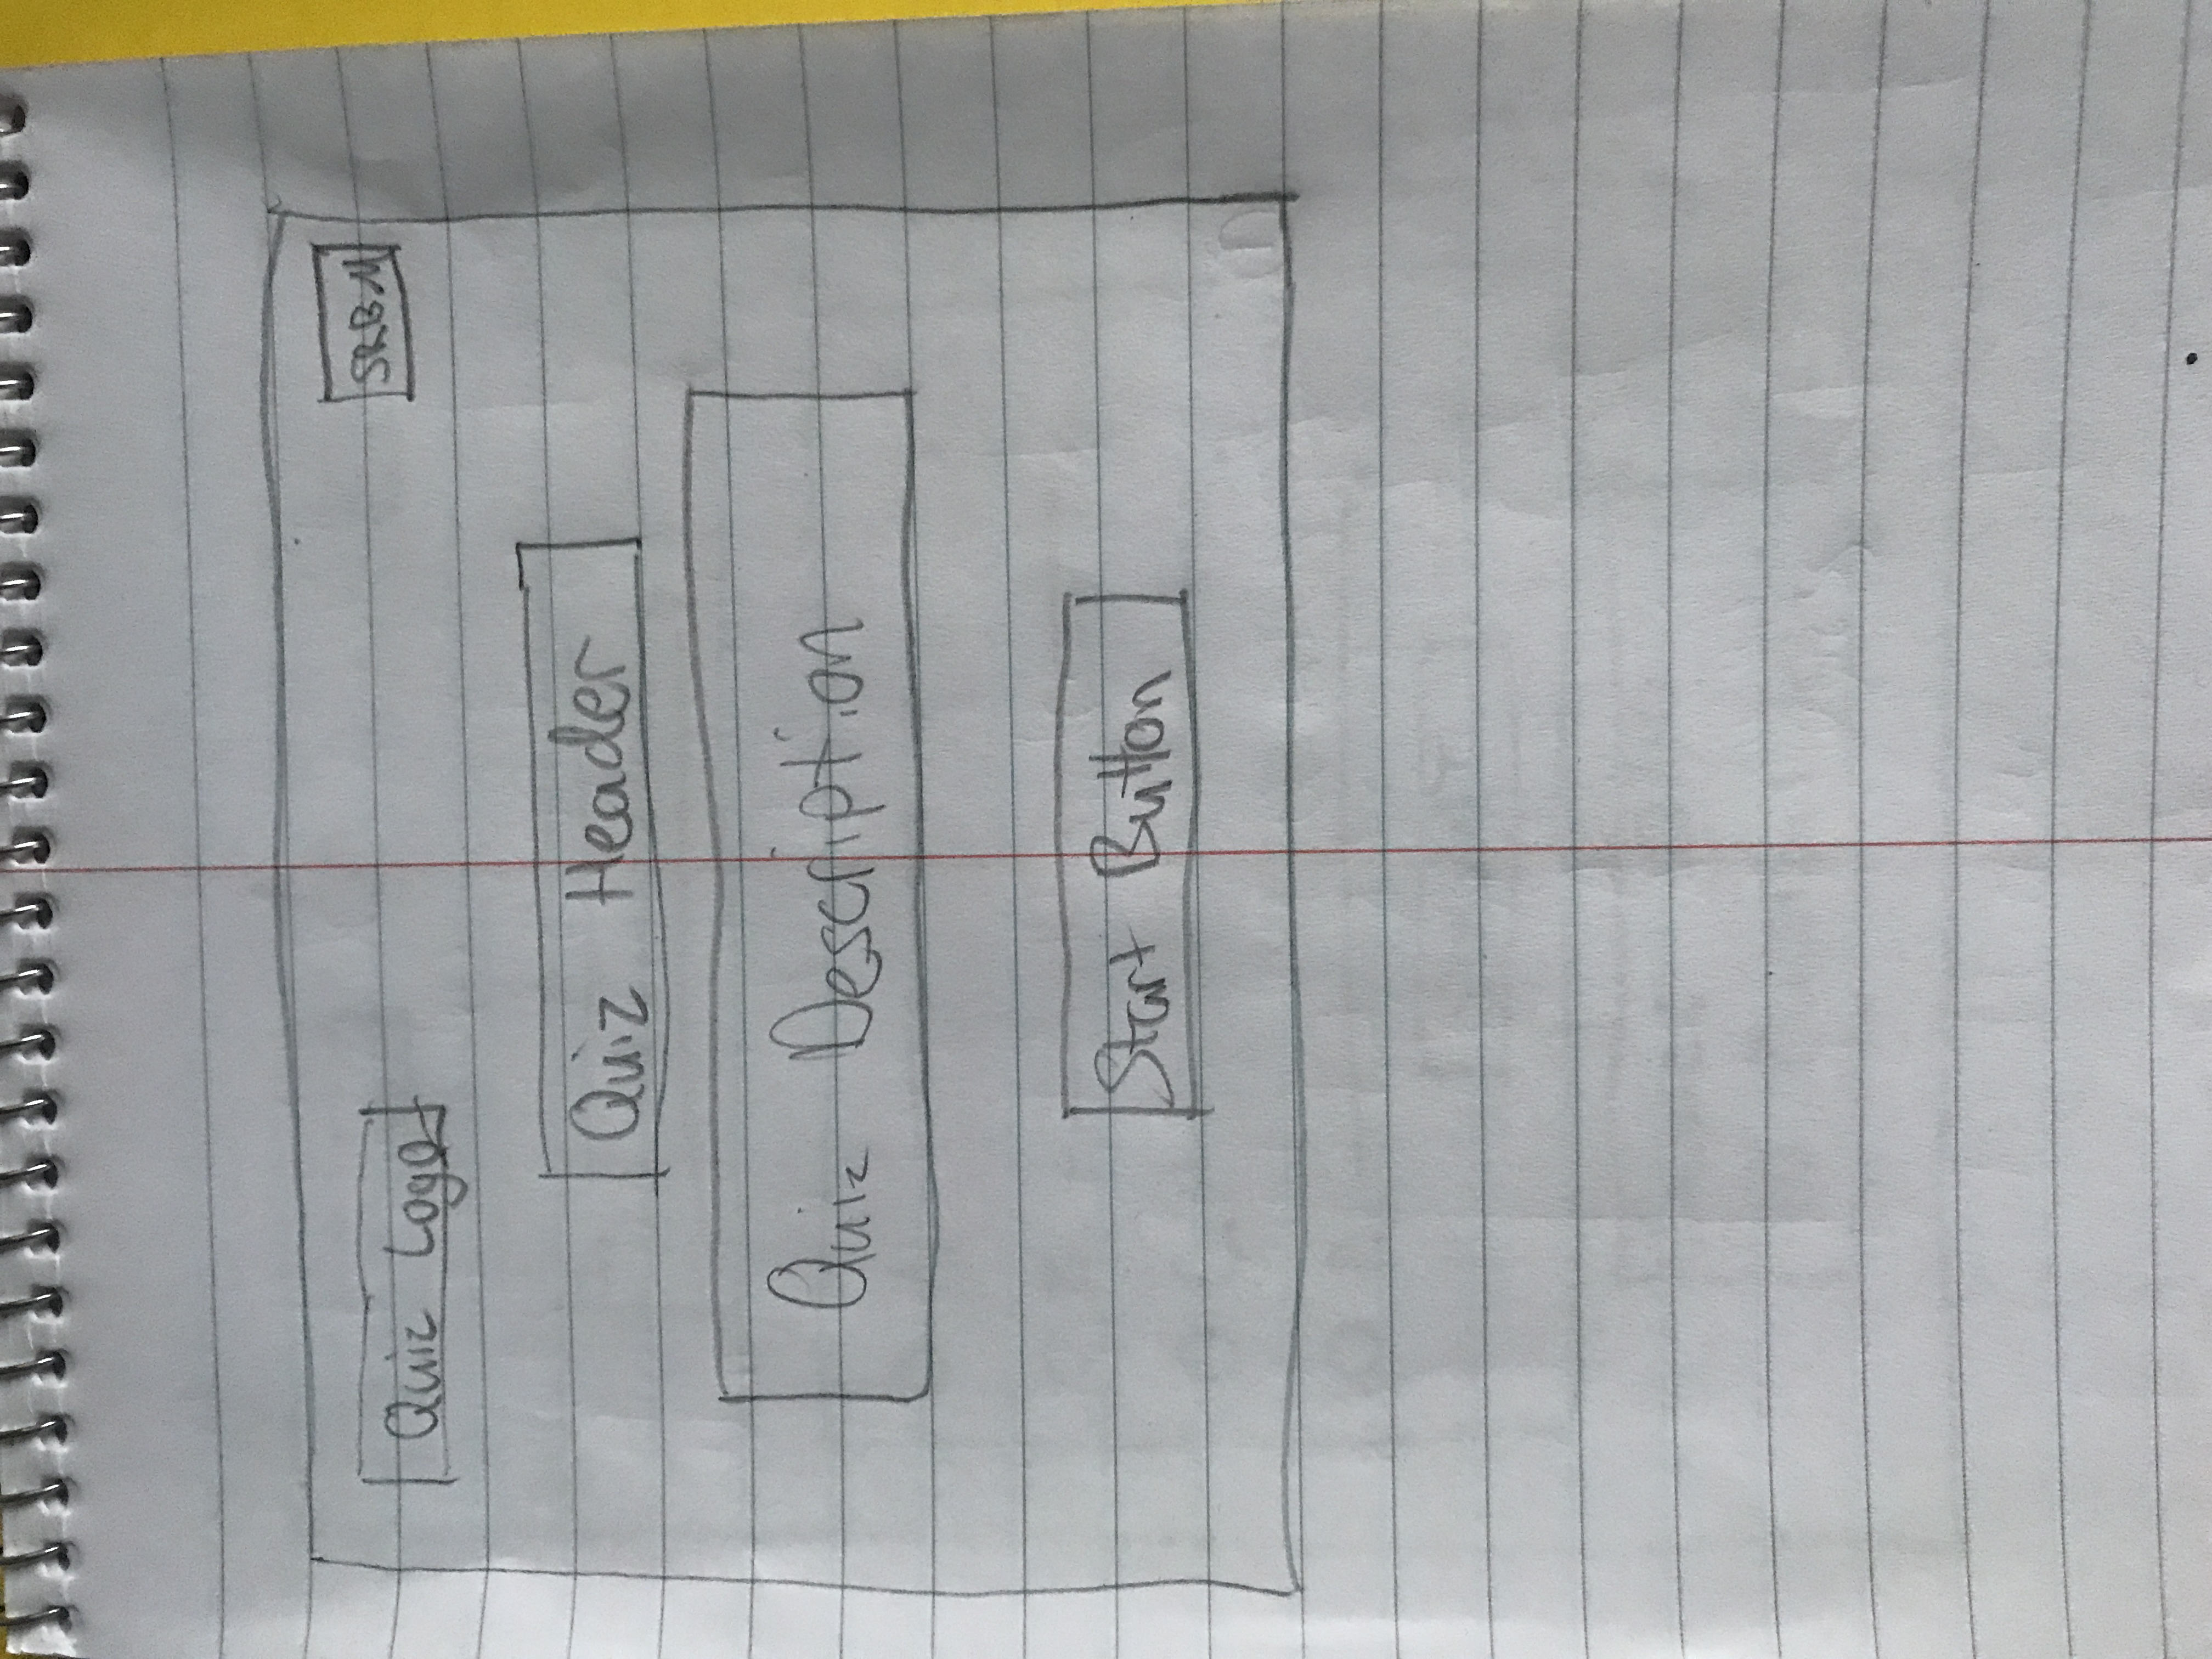 Quiz Logo
SRBM
Quiz Header
Quiz Description
Start Button